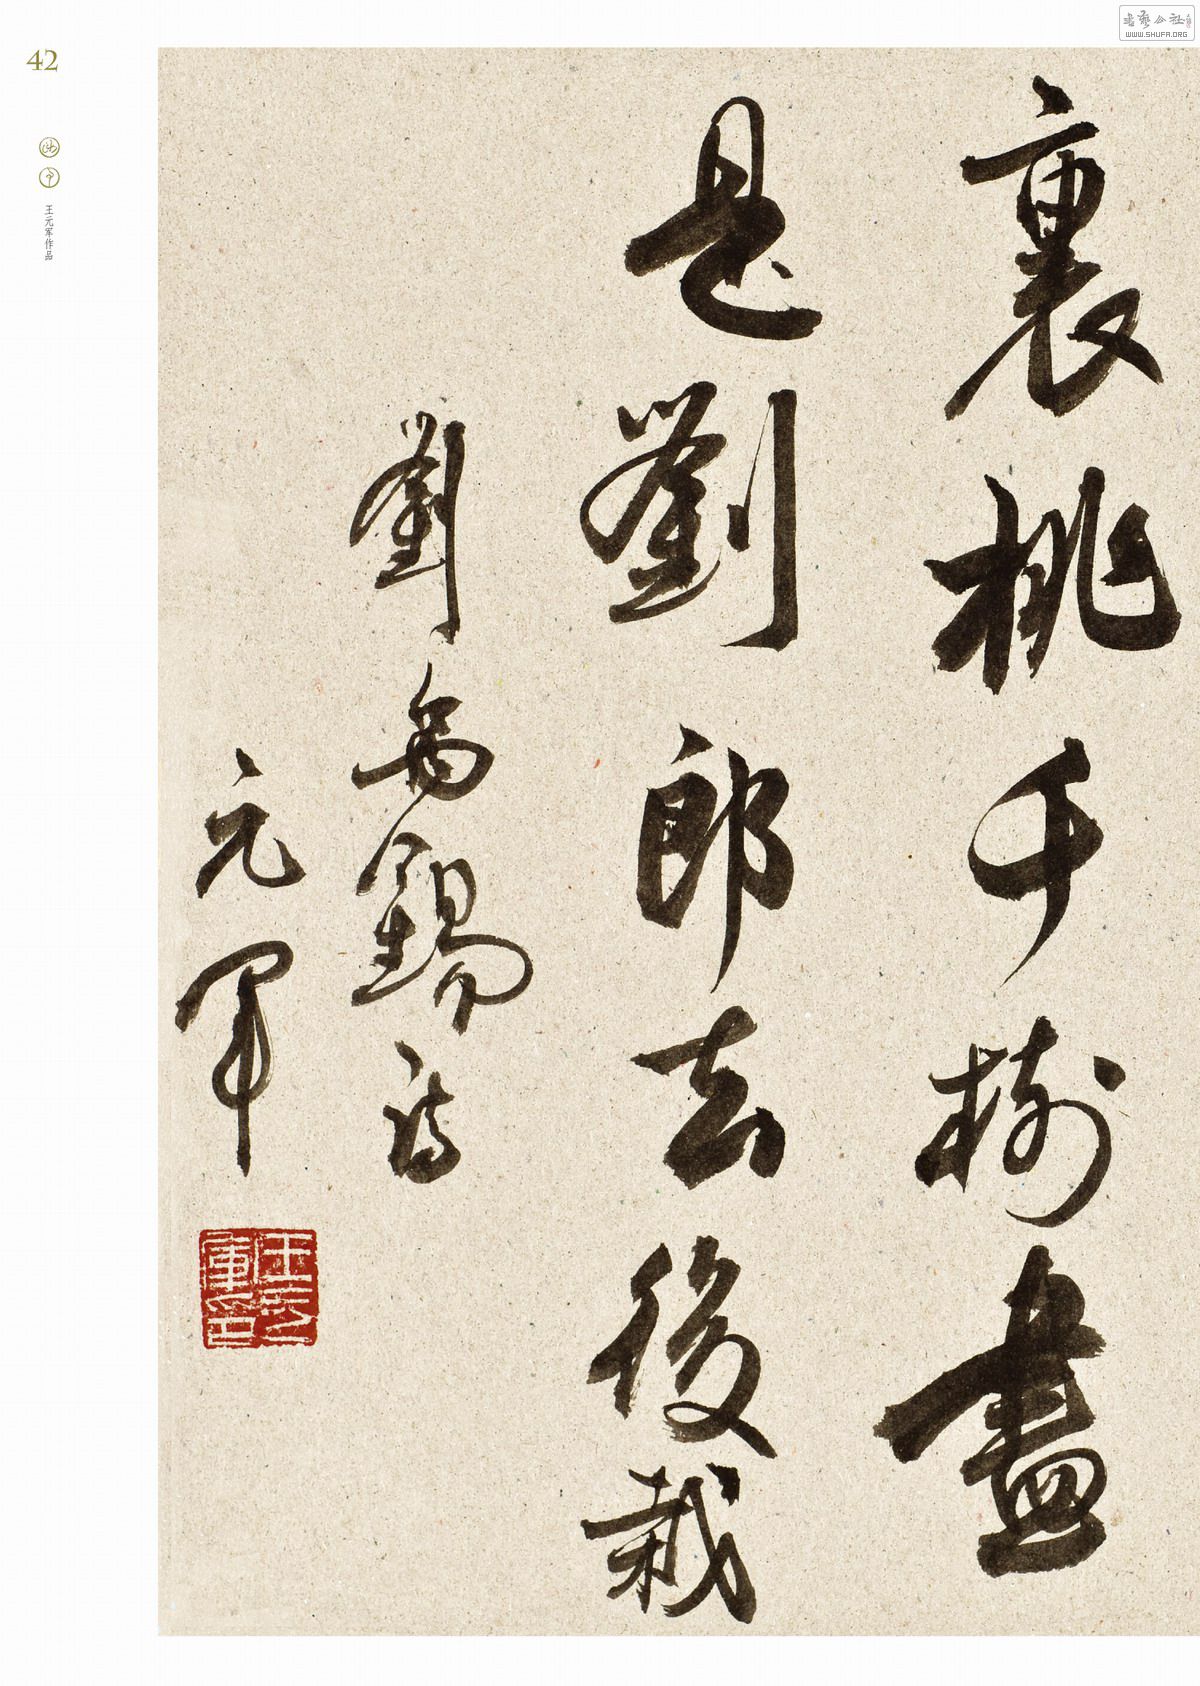 裏桃千樹盡
是劉郎去後栽
劉禹錫詩
元軍
王元軍印
42
王元军作品
书艺公社
WWW.SHUFA.ORG